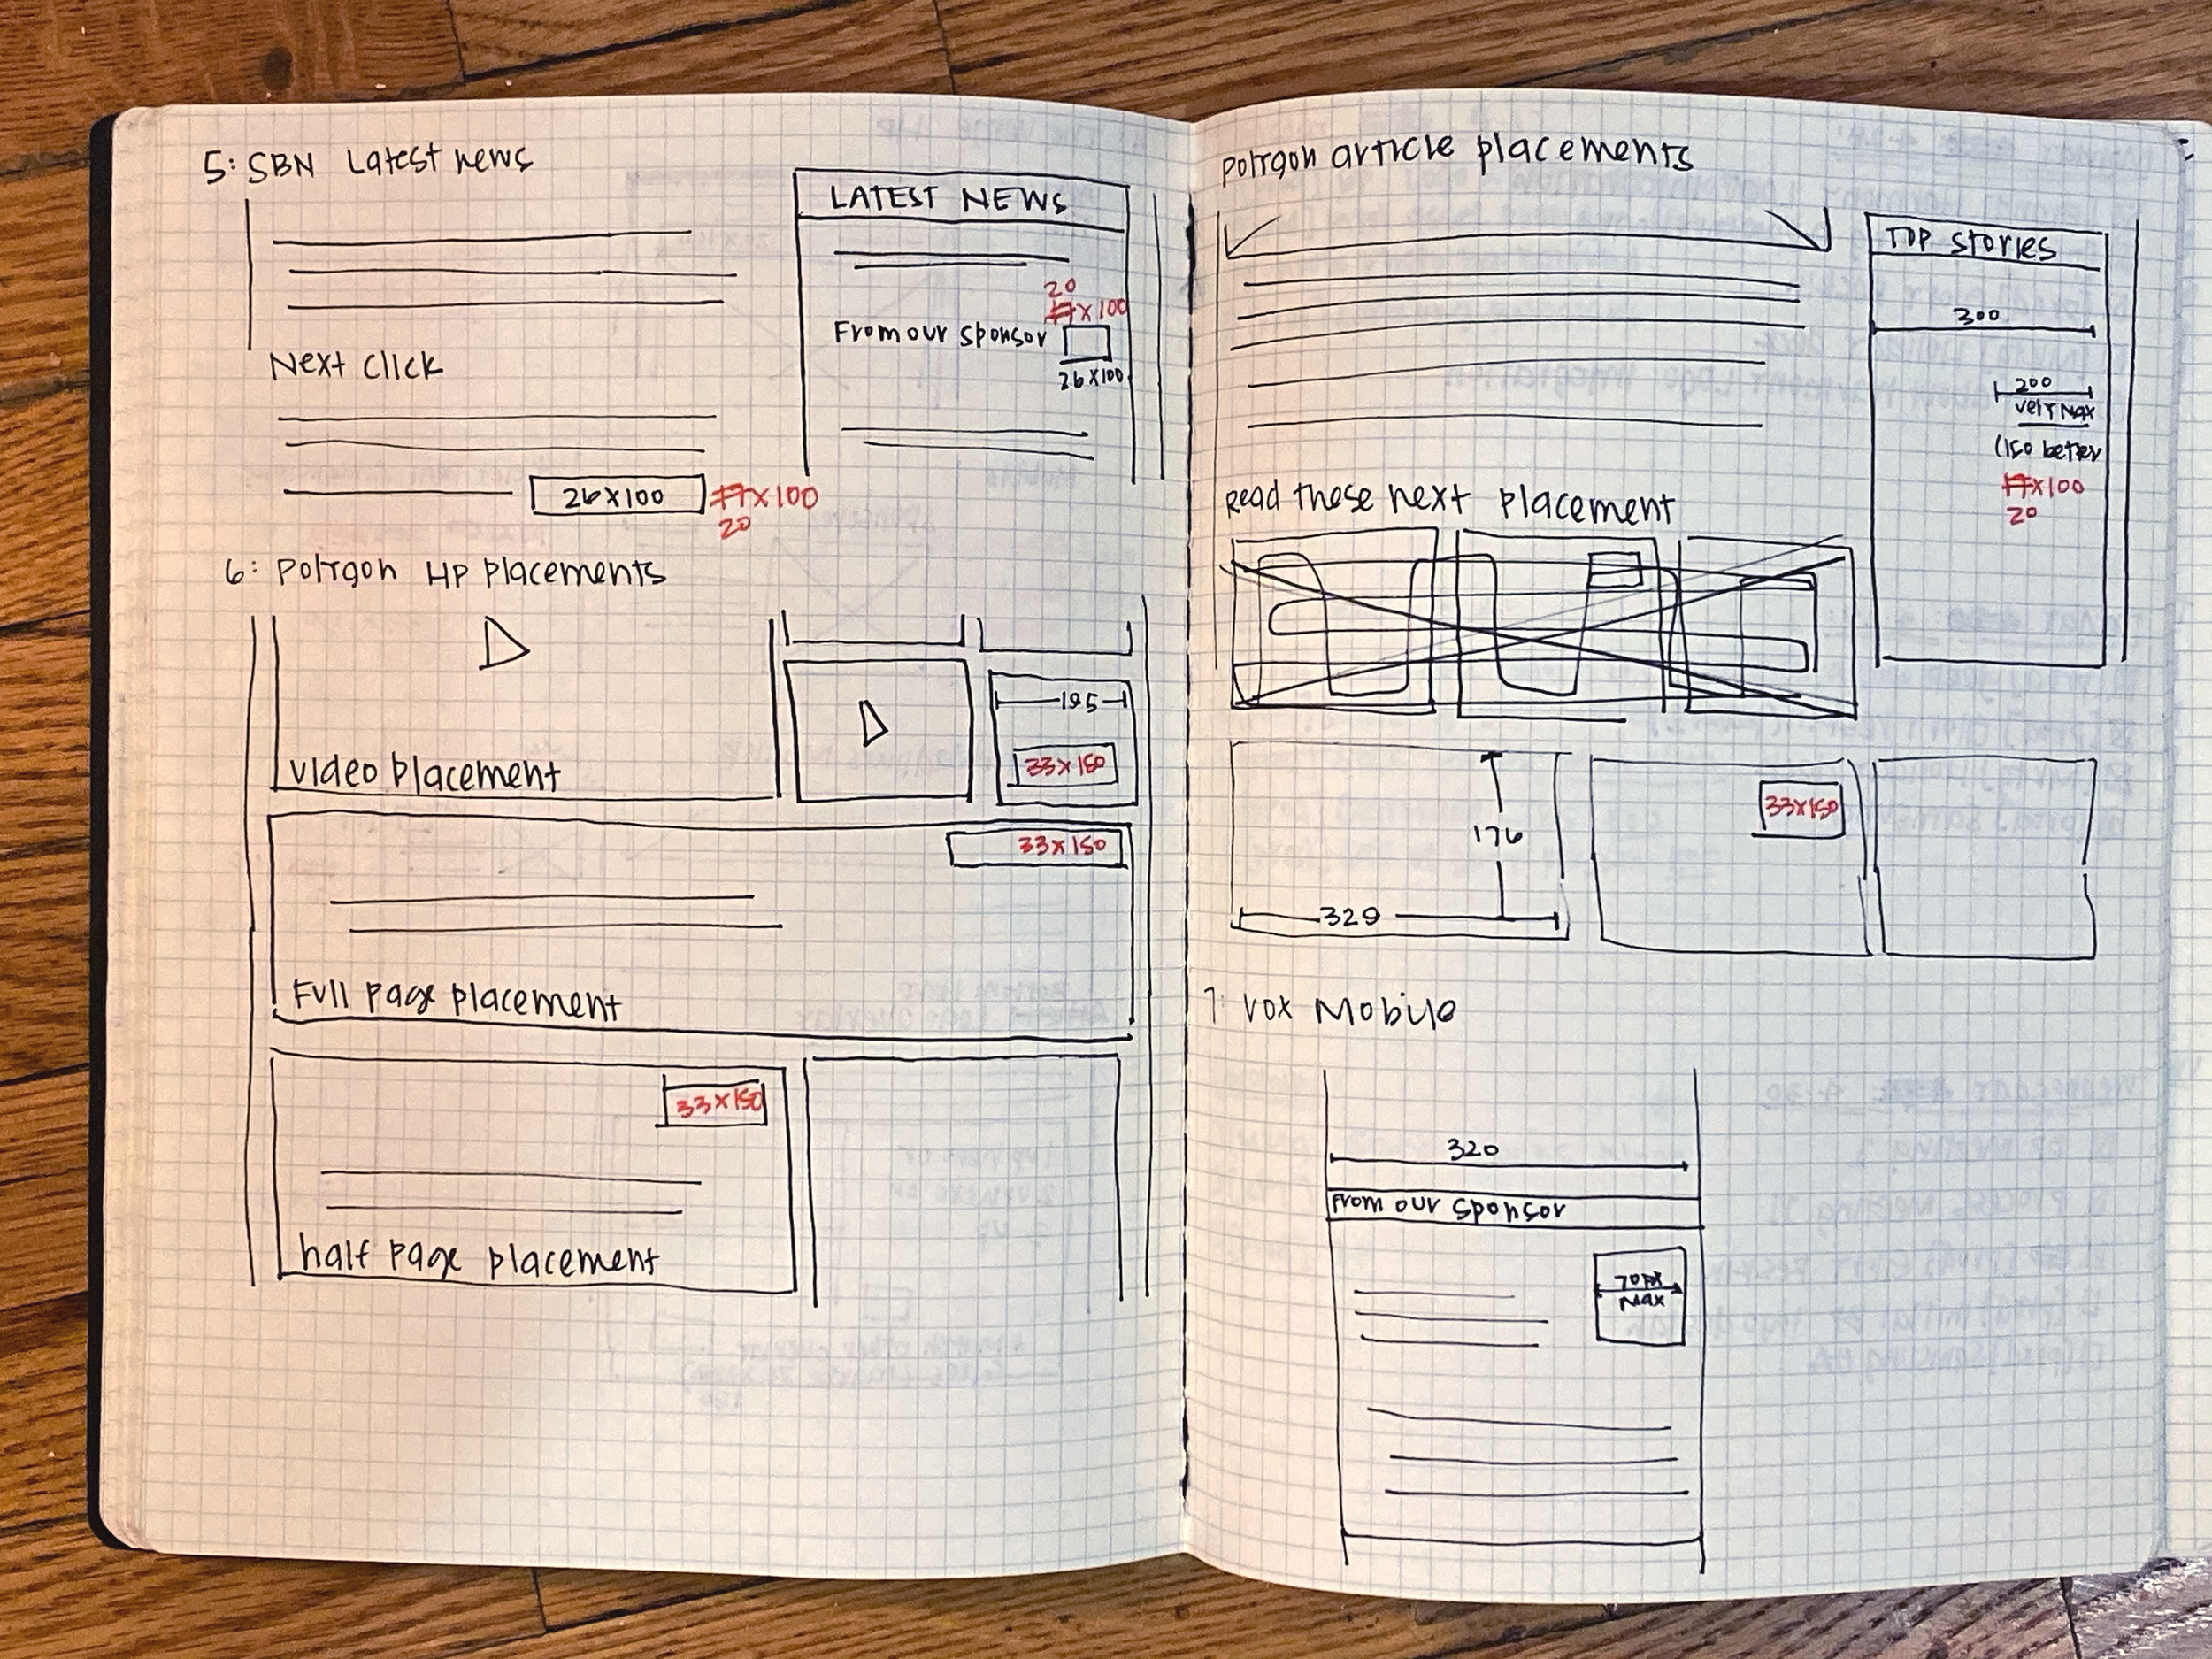 5: SBN Latest news
LATEST NEWS
20
x100
From our sponsor
26x100
Next Click
26x100
x100
20
6: Polygon HP placements
195
33x150
video placement
33x150
Full page placement
33x150
half page placement
Polygon article placements
TOP Stories
300
200
very Max
(150 better
x100
20
Read these next placement
176
329
33x150
7: Vox Mobile
320
From our sponsor
70px
Max